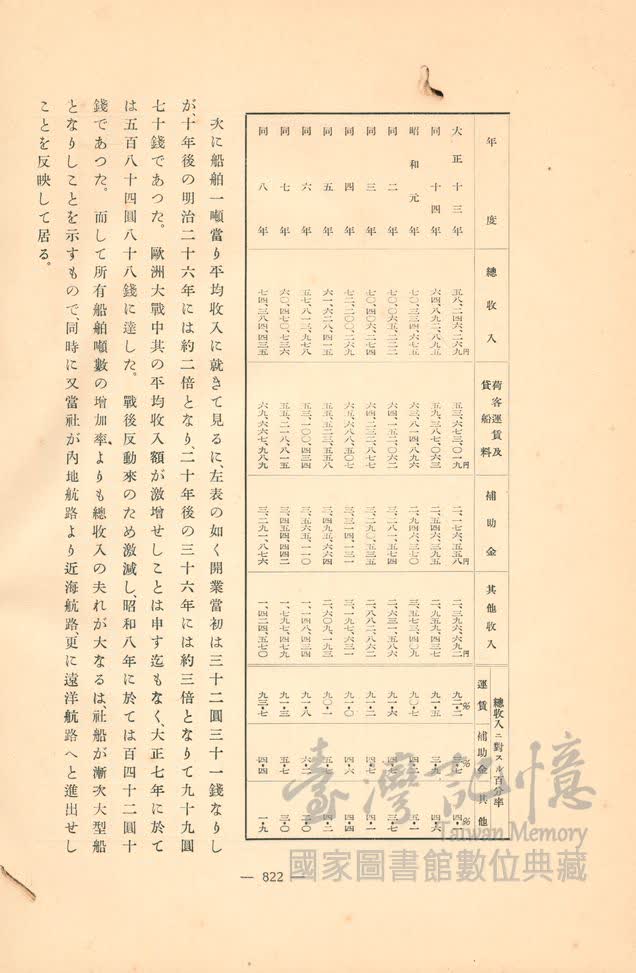 年度 總收入 荷客運賃及貸船料 補助金 其他收入 總收入ニ對スル百分率 運賃 補助金 其他
大正十三年 五八、二四六、二六九円 五三、六七三、〇一九円 二、一七六、五五八円 二、三九六、六九二円 九二・二% 三・七% 四・一%
同十四年 六四、八九二、八九五 五九、三八七、〇六三 二、五四六、三九五 二、九五九、四三七 九一・五 三・九 四・六
昭和元年 七〇、三三四、六七五 六三、八一四、八九六 二、九四六、三七〇 三、五七三、四〇九 九〇・七 四・二 五・一
同二年 七〇、〇六五、二二二 六四、一五二、〇六二 三、二八一、五七四 二、六三一、五八六 九一・六 四・七 三・七
同三年 七〇、四〇六、二七四 六四、二三二、八七七 三、二九〇、五三五 二、八八二、八六二 九一・二 四・七 四・一
同四年 七二、二〇〇、二六九 六五、六八八、五〇七 三、三一四、一三一 三、一九七、六三一 九一・〇 四・六 四・四
同五年 六一、六二八、四一五 五五、五二三、五五八 三、四九五、六六四 二、六〇九、一九三 九〇・一 五・七 四・二
同六年 五七、八一三、九七八 五三、一〇〇、四三四 三、五六五、一一〇 一、一四八、四三四 九一・八 六・二 二・〇
同七年 六〇、四七〇、七三六 五五、二一八、八一五 三、四五四、四四二 一、七九七、四七九 九一・三 五・七 三・〇
同八年 七四、三八四、四三五 六九、六六七、九八九 三、二九一、八七六 一、四二四、五七〇 九三・七 四・四 一・九
次に船舶一噸當り平均收入に就きて見るに、左表の如く開業當初は三十二圓三十一錢なりし
が、十年後の明治二十六年には約二倍となり、二十年後の三十六年には約三倍となりて九十九圓
七十錢であつた。歐洲大戰中其の平均收入額が激增せしことは申す迄もなく、大正七年に於て
は五百八十四圓八十八錢に達した。戰後反動來のため激減し、昭和八年に於ては百四十二圓十
錢であつた。而して所有船舶噸數の增加率よりも總收入の夫れが大なるは、社船が漸次大型船
となりしことを示すもので、同時に又當社が內地航路より近海航路、更に遠洋航路へと進出せし
ことを反映して居る。
— 822 —
臺灣記憶
Taiwan Memory
國家圖書館數位典藏